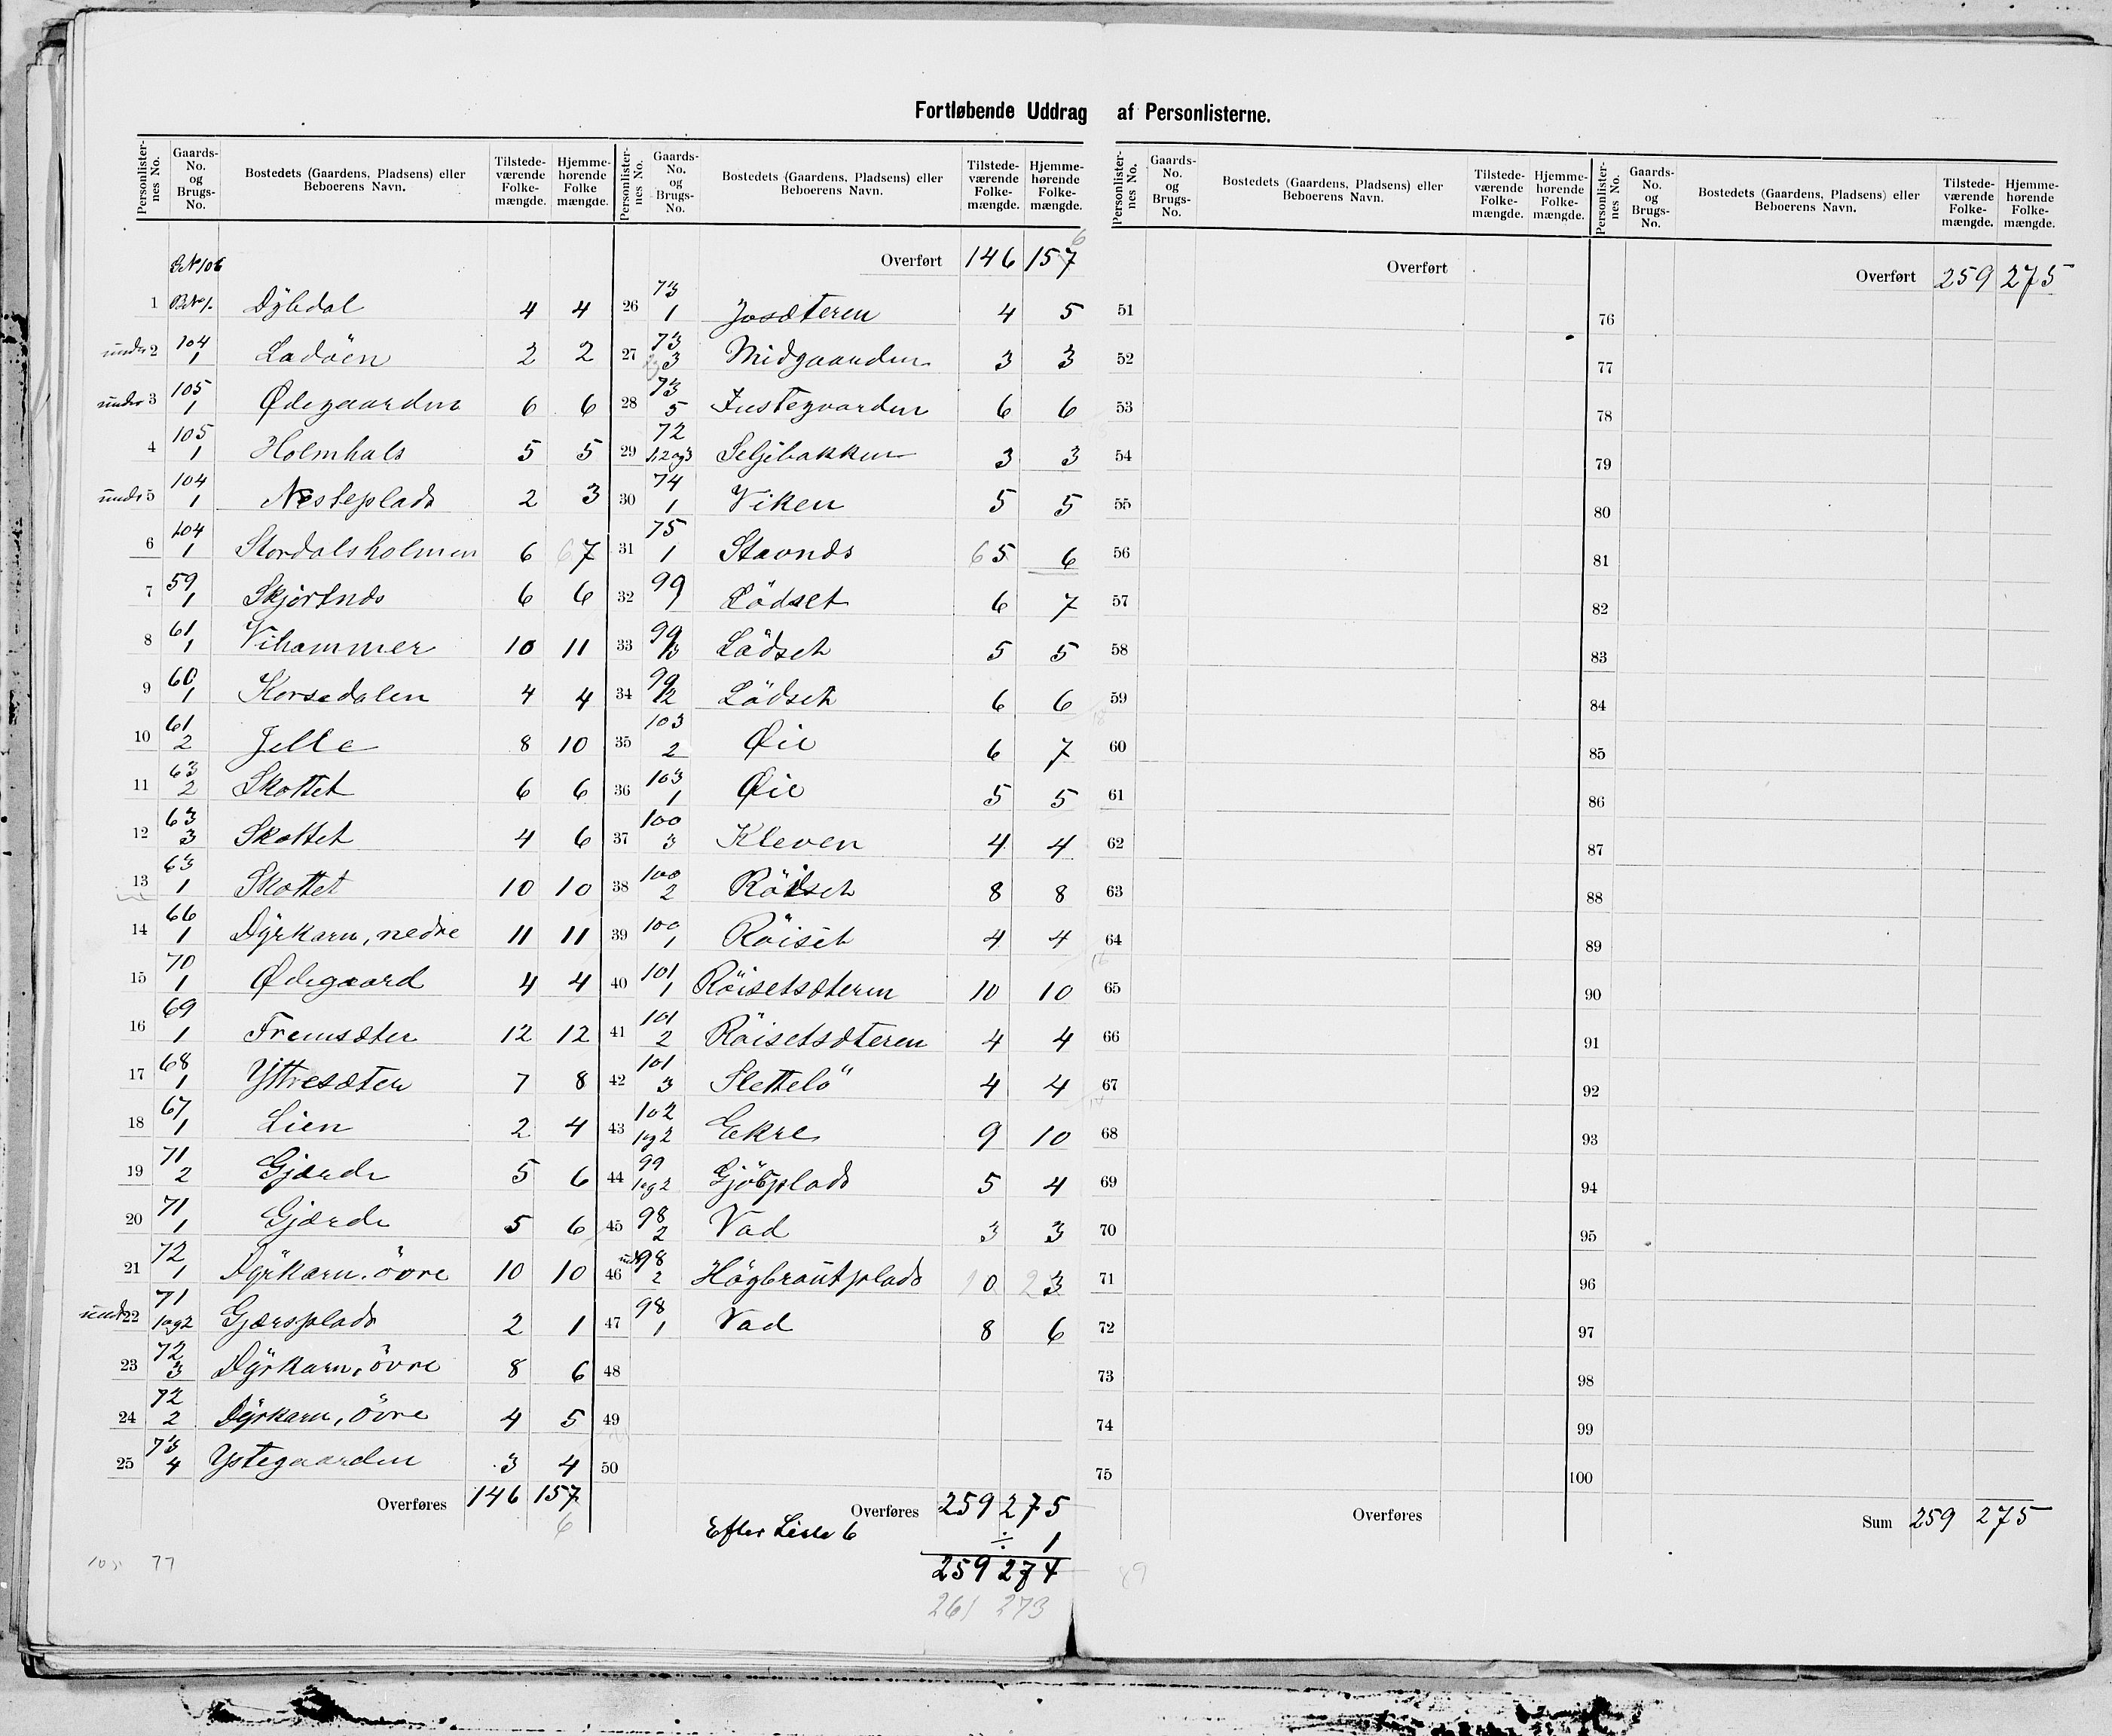 Fortløbende Uddrag af Personlisterne.
Personlisternes No. Gaards-No. og Brugs-No. Bostedets (Gaardens, Pladsens) eller Beboerens Navn. Tilstedeværende Folkemængde. Hjemmehørende Folkemængde.
G.No 106
1 B.No 1. Dybdal 4 4
under 2 104/1 Ladöen 2 2
under 3 105/1 Ødegaarden 6 6
4 105/1 Holmhals 5 5
under 5 104/1 Nesteplads 2 3
6 104/1 Stordalsholmen 6 6 7
7 59/1 6 6
8 61/1 Vihammer 10 11
9 60/1 Korsedalen 4 4
10 61/2 Jelle 8 10
11 63/2 Skottet 6 6
12 63/3 Skottet 4 6
13 63/1 Skottet 10 10
14 66/1 Dyrkarn, nedre 11 11
15 70/1 Ødegaard 4 4
16 69/1 Fremsæter 12 12
17 68/1 Yttresæter 7 8
18 67/1 Lien 2 4
19 71/2 Gjærde 5 6
20 71/1 Gjærde 5 6
21 72/1 Dyrkarn, övre 10 10
under 22 71/1 og 2 Gjærsplads 2 1
23 72/3 Dyrkarn, övre 8 6
24 72/2 Dyrkarn, övre 4 5
25 73/4 Ystegaarden 3 4
Overføres 146 157
6
77
Personlisternes No. Gaards-No. og Brugs-No. Bostedets (Gaardens, Pladsens) eller Beboerens Navn. Tilstedeværende Folkemængde. Hjemmehørende Folkemængde.
Overført 146 157 6
26 73/1 Josæteren 4 5
27 73/3 Midgaarden 3 3
28 73/5 Instegaarden 6 6
29 72/1, 2 og 3 Seljebakken 3 3
30 74/1 Viken 5 5
31 75/1 Stavnds 6 5 6
32 99/1 Lödset 6 7
33 99/3 Lödset 5 5
34 99/2 Lödset 6 6
35 103/2 Øie 6 7
36 103/1 Øie 5 5
37 100/3 Kleven 4 4
38 100/2 Röiset 8 8
39 100/1 Röiset 4 4
40 101/1 Röisetsæteren 10 10
41 101/2 Röisetsæteren 4 4
42 101/3 Slettelö 4 4
43 102/1 og 2 Ekre 9 10
44 99/1 og 2 Gjöbplads 5 4
45 98/2 Vad 3 3
46 under 98/2 Högbrautplads 1 0 2 3
47 98/1 Vad 8 6
48
49
50
Overføres 259 275
Efter Liste 6 ÷ 1
259 274
261 273
Personlisternes No. Gaards-No. og Brugs-No. Bostedets (Gaardens, Pladsens) eller Beboerens Navn. Tilstedeværende Folkemængde. Hjemmehørende Folkemængde.
Overført
51
52
53
54
55
56
57
58
59
60
61
62
63
64
65
66
67
68
69
70
71
72
73
74
75
Overføres
Personlisternes No. Gaards-No. og Brugs-No. Bostedets (Gaardens, Pladsens) eller Beboerens Navn. Tilstedeværende Folkemængde. Hjemmehørende Folkemængde.
Overført 259 275
76
77
78
79
80
81
82
83
84
85
86
87
88
89
90
91
92
93
94
95
96
97
98
99
100
Sum 259 275